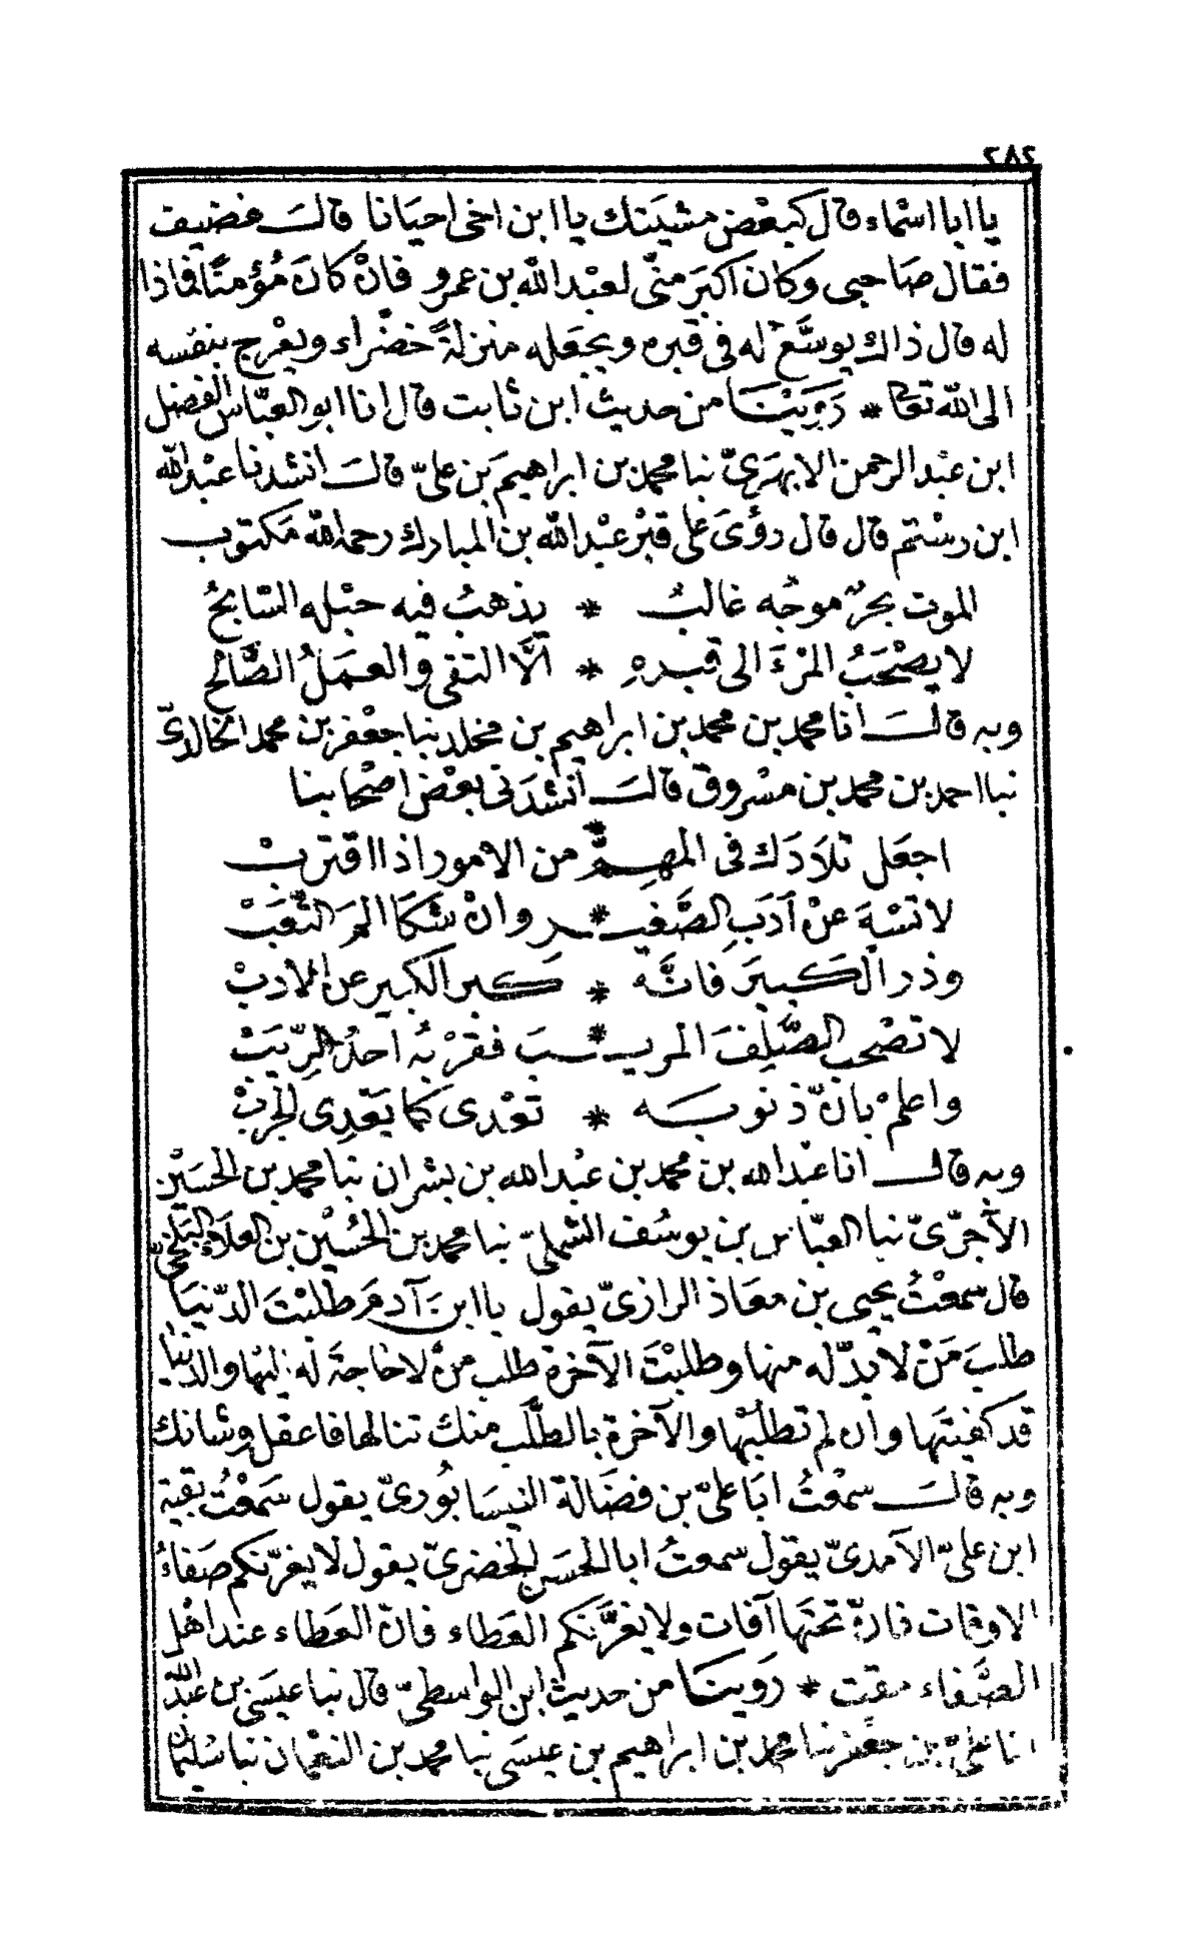 ٢٨٢
يا ابا اسْماء قال كبعْض مشيَتك يا ابن اخى احيَانا قالــَ فضيف
فقال صَاحبى وكان اكبَر منّى لعبْد الله بن عمرو فانْ كانَ مُؤمنًا فماذا
له قال ذاك يوسَّع له فى قبره ويجعَله منزلةً خضْراء ويعْرج بنفسه
الى الله تعالى * رَوَيْنَا من حديث ابن ثابت قال انا ابو العبّاس الفضل
ابن عبْد الرحمن الابهَرىّ نبا محمد بن ابراهيمَ بن علىّ قالــَ انشدنا عبْد الله
ابن رسْتم قال قال رؤىَ على قبْر عبْد الله بن المبارك رحمه الله مَكتوب
الموت بحرٌ موجُه غالبُ * يذهبُ فيه حيْله السّابحُ
لا يصْحَبُ المرْءَ الى قبره * الَّا التقى والعمَلُ الصَّالح
وبه قالــَ انا محمد بن محمد بن ابراهيم بن مخلد نبا جعْفر بن محمد الخالدىّ
نبا احمد بن محمد بن مسْروق قالــَ انشدَنى بعْض اصْحابنا
اجعَل تلادَك فى المهِمّْ * من الامور اذا اقترَبْ
لا تسْهَ عنْ ادَبِ الصَّغيــ * ــر وانْ شكَا المَ التَّعَبْ
وذر الكَبيَر فانَّه * كبر الكبير عن الادبْ
لا تصْحب الصَّلِفَ المريــ * ــبَ فقرْبُه احدُ الرِّيَبْ
واعلمْ بانّ ذنوبــَه * تعْدى كما يَعْدِى الجَرَبْ
وبه قالــ انا عبْد الله بن محمد بن عبْد الله بن بشران نبا محمد بن الحسَيْن
الآجرّىّ نبا العبّاس بن يوسُف الشكلىّ نبا محمد بن الحُسَيْن بن العلاء البَلخىّ
قال سمعْتُ يحيى بن معَاذ الرازىّ يقول يا ابنَ آدمَ طلبْتَ الدّنيَا
طلبَ مَنْ لا بدّ له منها وطلبْتَ الآخرة طلب منْ لا حَاجةَ له اليها والدنْيا
قد كفيتَها وان لم تطلُبْها والآخرة بالطَّلَب منك تنالها فاعقل وشانك
وبه قالــَ سمْعتُ ابَا علىّ بن فضَالة النيسَابُورىّ يقول سَمعْتُ بقية
ابن علىّ الآمدىّ يقول سمعتُ ابا الحسَن الخضرىّ يقول لا يغرّنكم صَفاءُ
الاوقات فانّ تحتهَا آفات ولا يغرَّنكم العَطاء فانّ العَطاء عند اهْل
الصَّفاء مقت * رَوينَا من حديث ابن الواسطىّ قال نبا عيسَى بن عبْد الله
انا علىّ بن جعفر نبا محمد بن ابراهيم بن عيسَى نبا محمد بن النعْمان نبا سُليمان